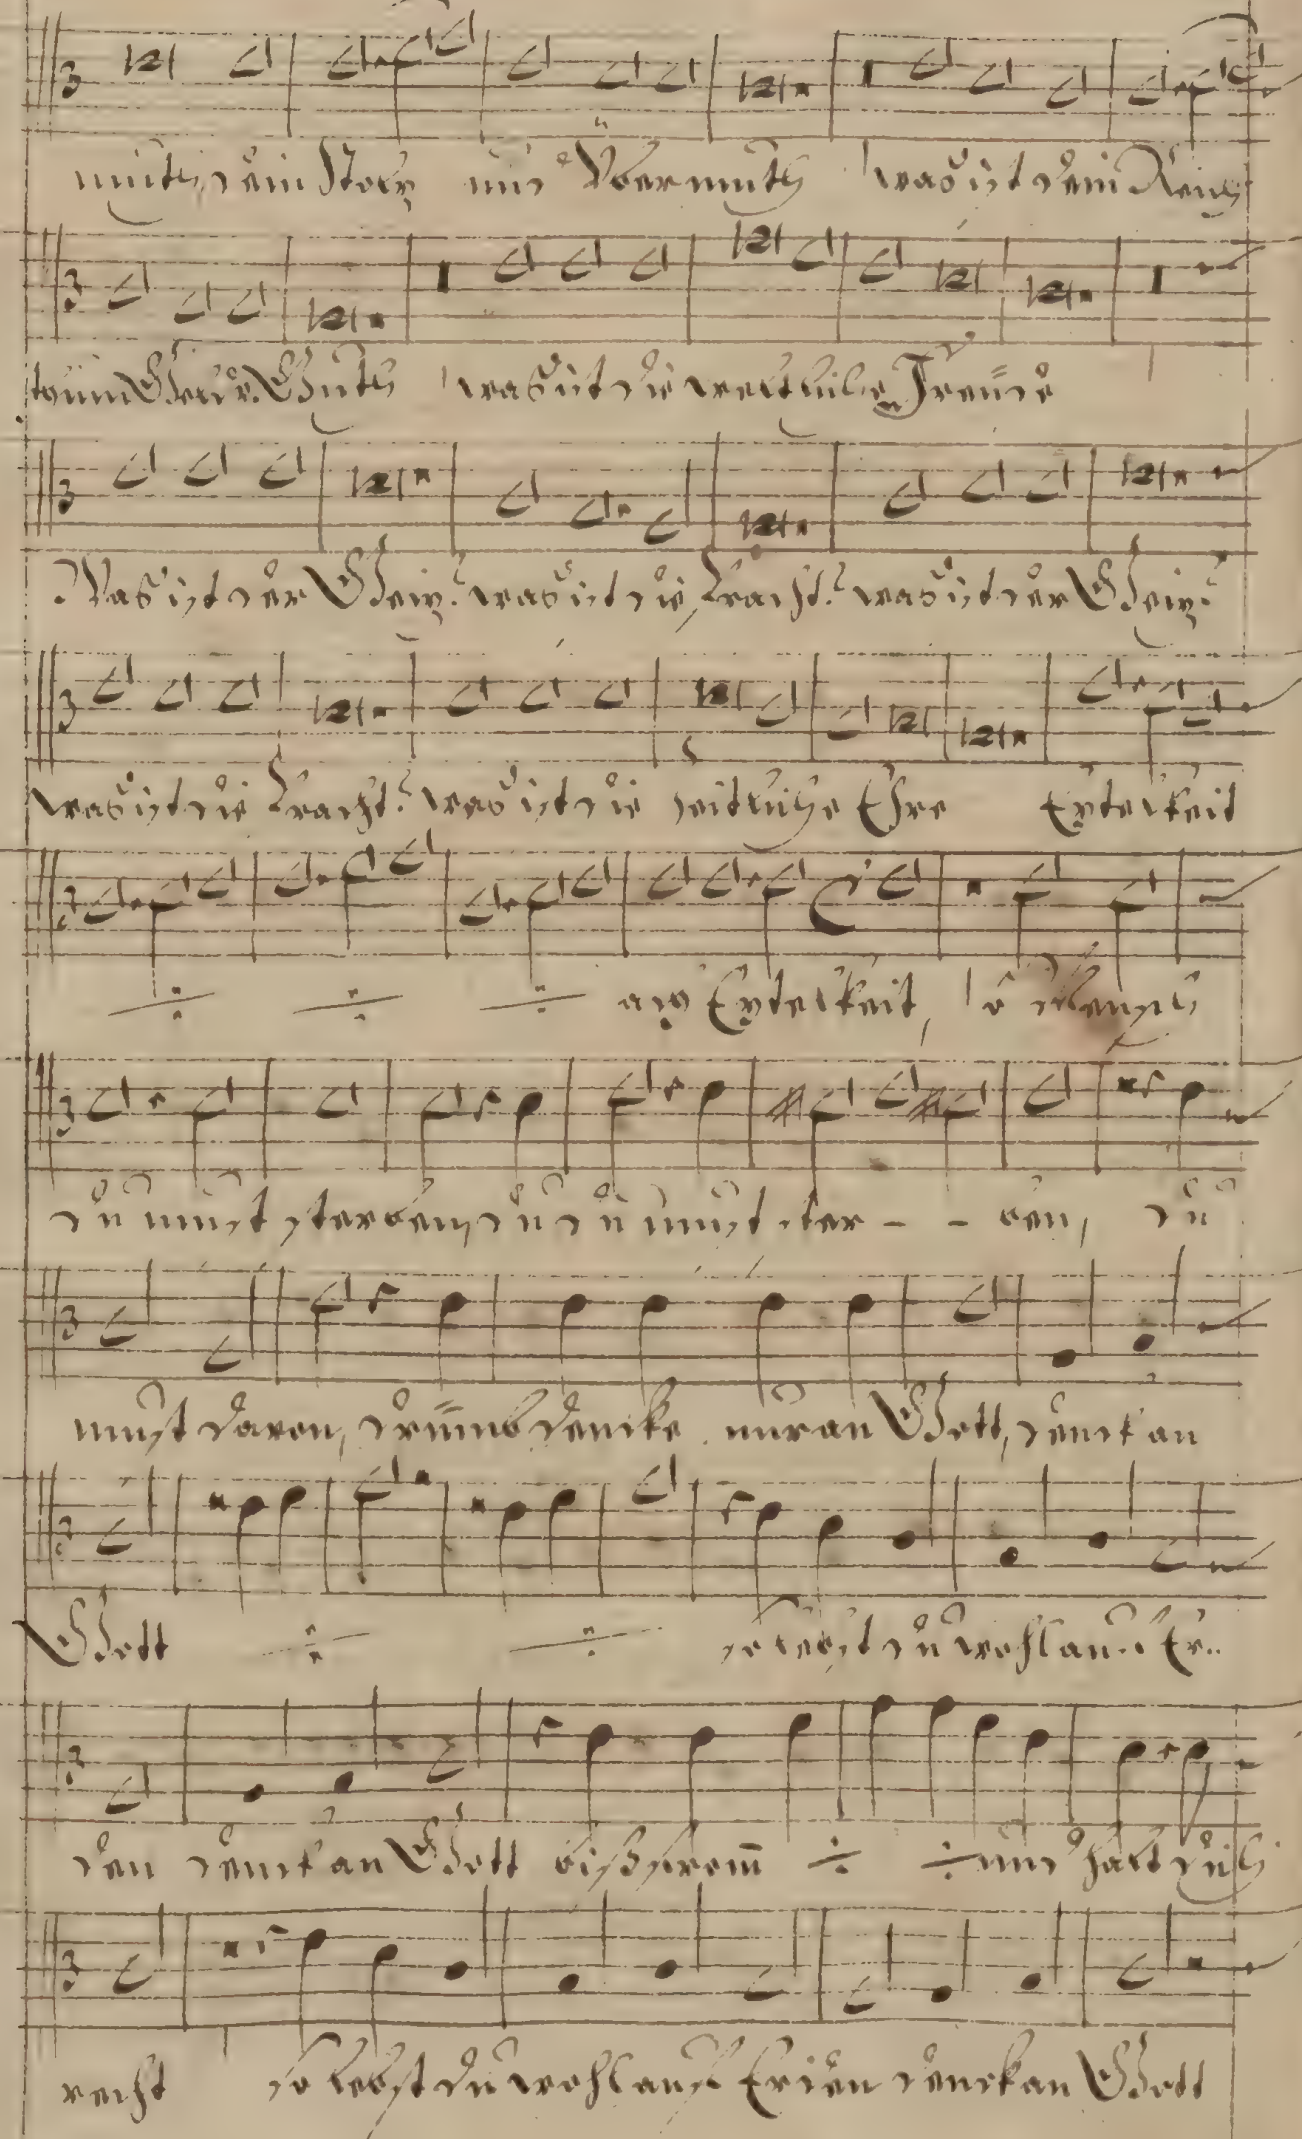 muth, dein Stoltz und Übermuth was ist dein Reich
thum Geld v. Guth was ist die weltliche Freude
Was ist der Geitz? was ist die Pracht? was ist der Geitz?
was ist die Pracht? was ist die zeitliche Ehre Eytelkeit
÷ ÷ ÷ ach Eytelkeit, o Mensch
du must sterben, du du must ster - - ben, du
must davon, drumb dencke nur an Gott, denck an
Gott ÷ ÷ so lebst du wohl auf Er-
den denck an Gott biß from̄ ÷ ÷ und halt dich
recht so lebst du wohl auf Erden denck an Gott